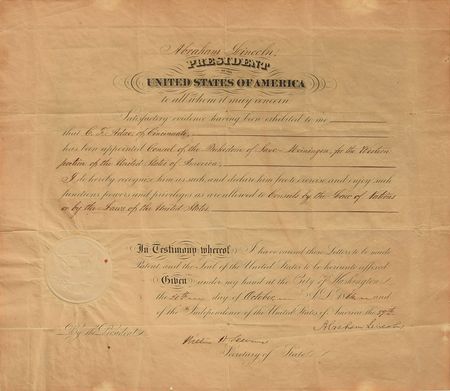 Abraham Lincoln.
PRESIDENT
UNITED STATES OF AMERICA
to all whom it may concern
Satisfactory evidence having been exhibited to me
that C. F. Adae, of Cincinnati,
has been appointed Consul of the Dukedom of Saxe-Meiningen, for the Western
portion of the United States of America,
I do hereby recognize him as such, and declare him free to exercise and enjoy such
functions powers and privileges as are allowed to Consuls by the Law of Nations
or by the Laws of the United States
In Testimony whereof I have caused these Letters to be made
Patent and the Seal of the United States to be hereunto affixed
Given under my hand at the City of Washington
the day of October A.D. and
of the Independence of the United States of America, the
Abraham Lincoln
By the President
William H. Seward
Secretary of State